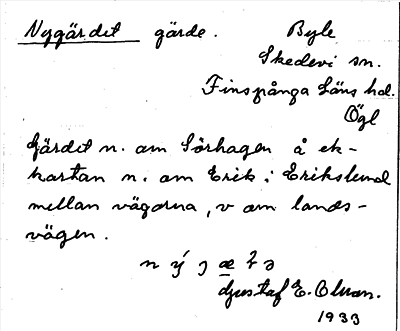 Nygärdet gärde. Byle
Skedevi sn.
Finspånga Läns hd.
Ögl
Gärdet n. om Sörhagen å ek-
kartan n. om Erik i Erikslund
mellan vägarna, v om lands-
vägen.
Gustaf E. Olsson.
1933